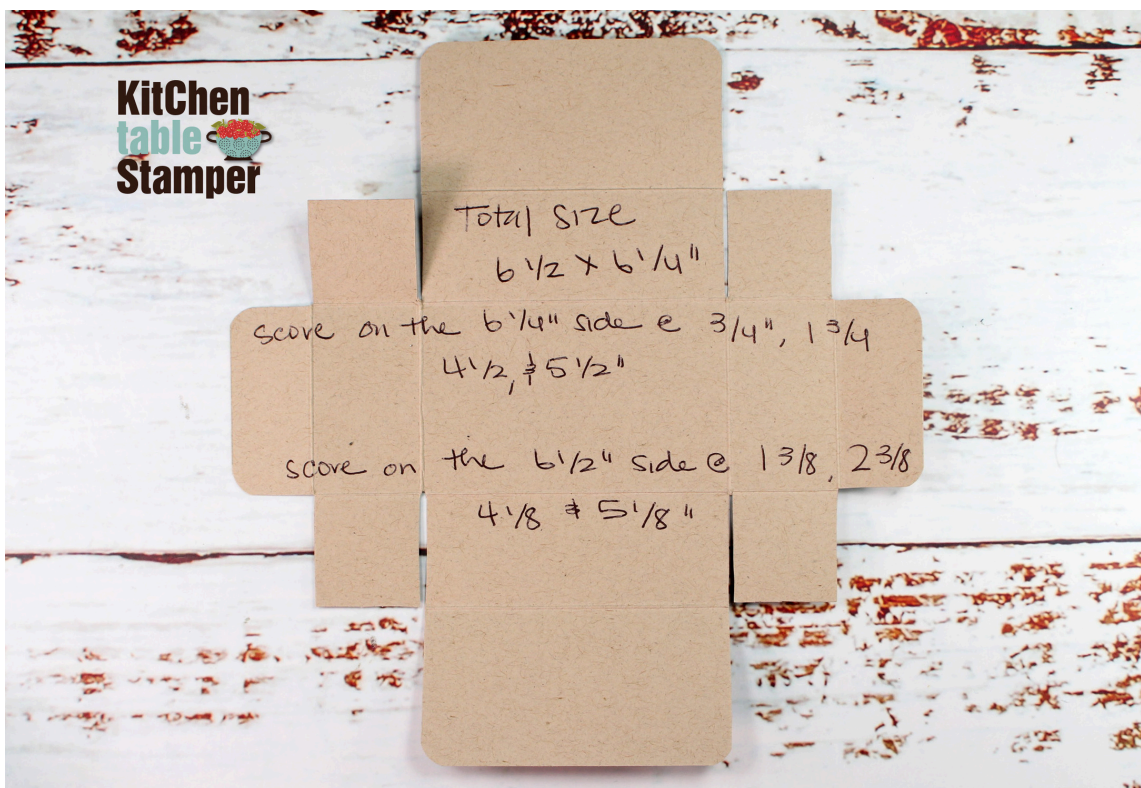 KitChen
table
Stamper
Total size
6 1/2 x 6 1/4"
score on the 6 1/4" side @ 3/4", 1 3/4
4 1/2, & 5 1/2"
score on the 6 1/2" side @ 1 3/8, 2 3/8
4 1/8 & 5 1/8"